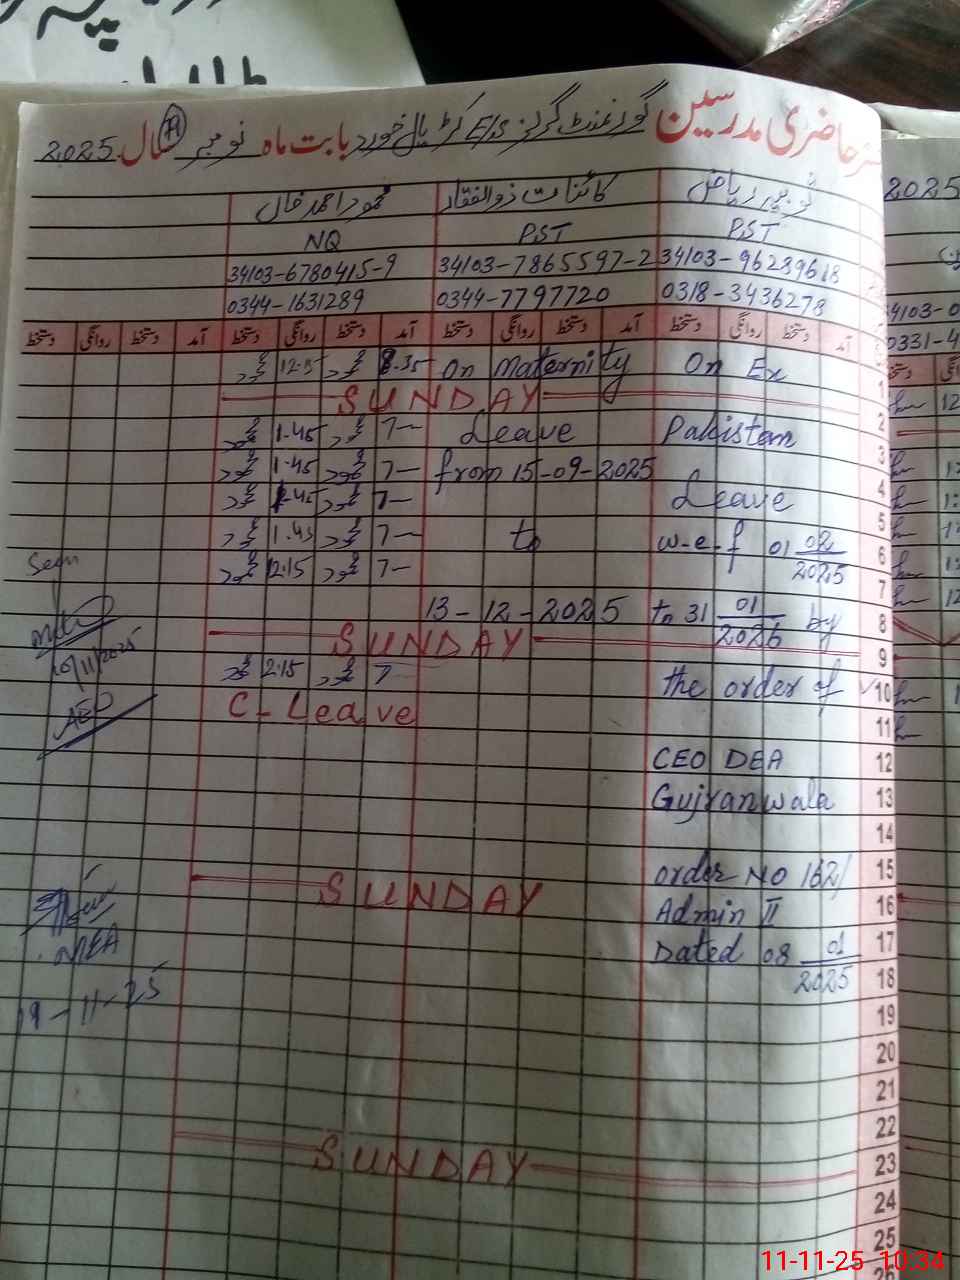 حاضری مدرسین گورنمنٹ گرلز E/S کڑیال خورد بابت ماہ نومبر سال 2025
تنویر ریاض کائنات ذوالفقار محمود احمد خان
PST PST NQ
34103-9628961-8 34103-7865597-2 34103-6780415-9
0318-3436278 0344-7797720 0344-1631289
آمد دستخط روانگی دستخط آمد دستخط روانگی دستخط آمد دستخط روانگی دستخط آمد دستخط روانگی دستخط
1 On Ex On Maternity 8.35 12.15
2 SUNDAY
3 Pakistan Leave 7— 1.45
4 from 15-09-2025 7— 1.45
5 Leave 7— 1.45
6 w-e-f 01 02/2025 to 7— 1.45
7 7— 12:15
8 to 31 01/2026 by 13-12-2025
9 SUNDAY
10 the order of 7— 2:15
11 C-Leave
12 CEO DEA
13 Gujranwala
14
15 order NO 162/
16 Admin II SUNDAY
17 Dated 08 01/2025
18
19
20
21
22
23 SUNDAY
24
25
26
Seen
10/11/2025
AEO
MEA
19-11-25
2025
34103-0
0331-4
11-11-25 10:34